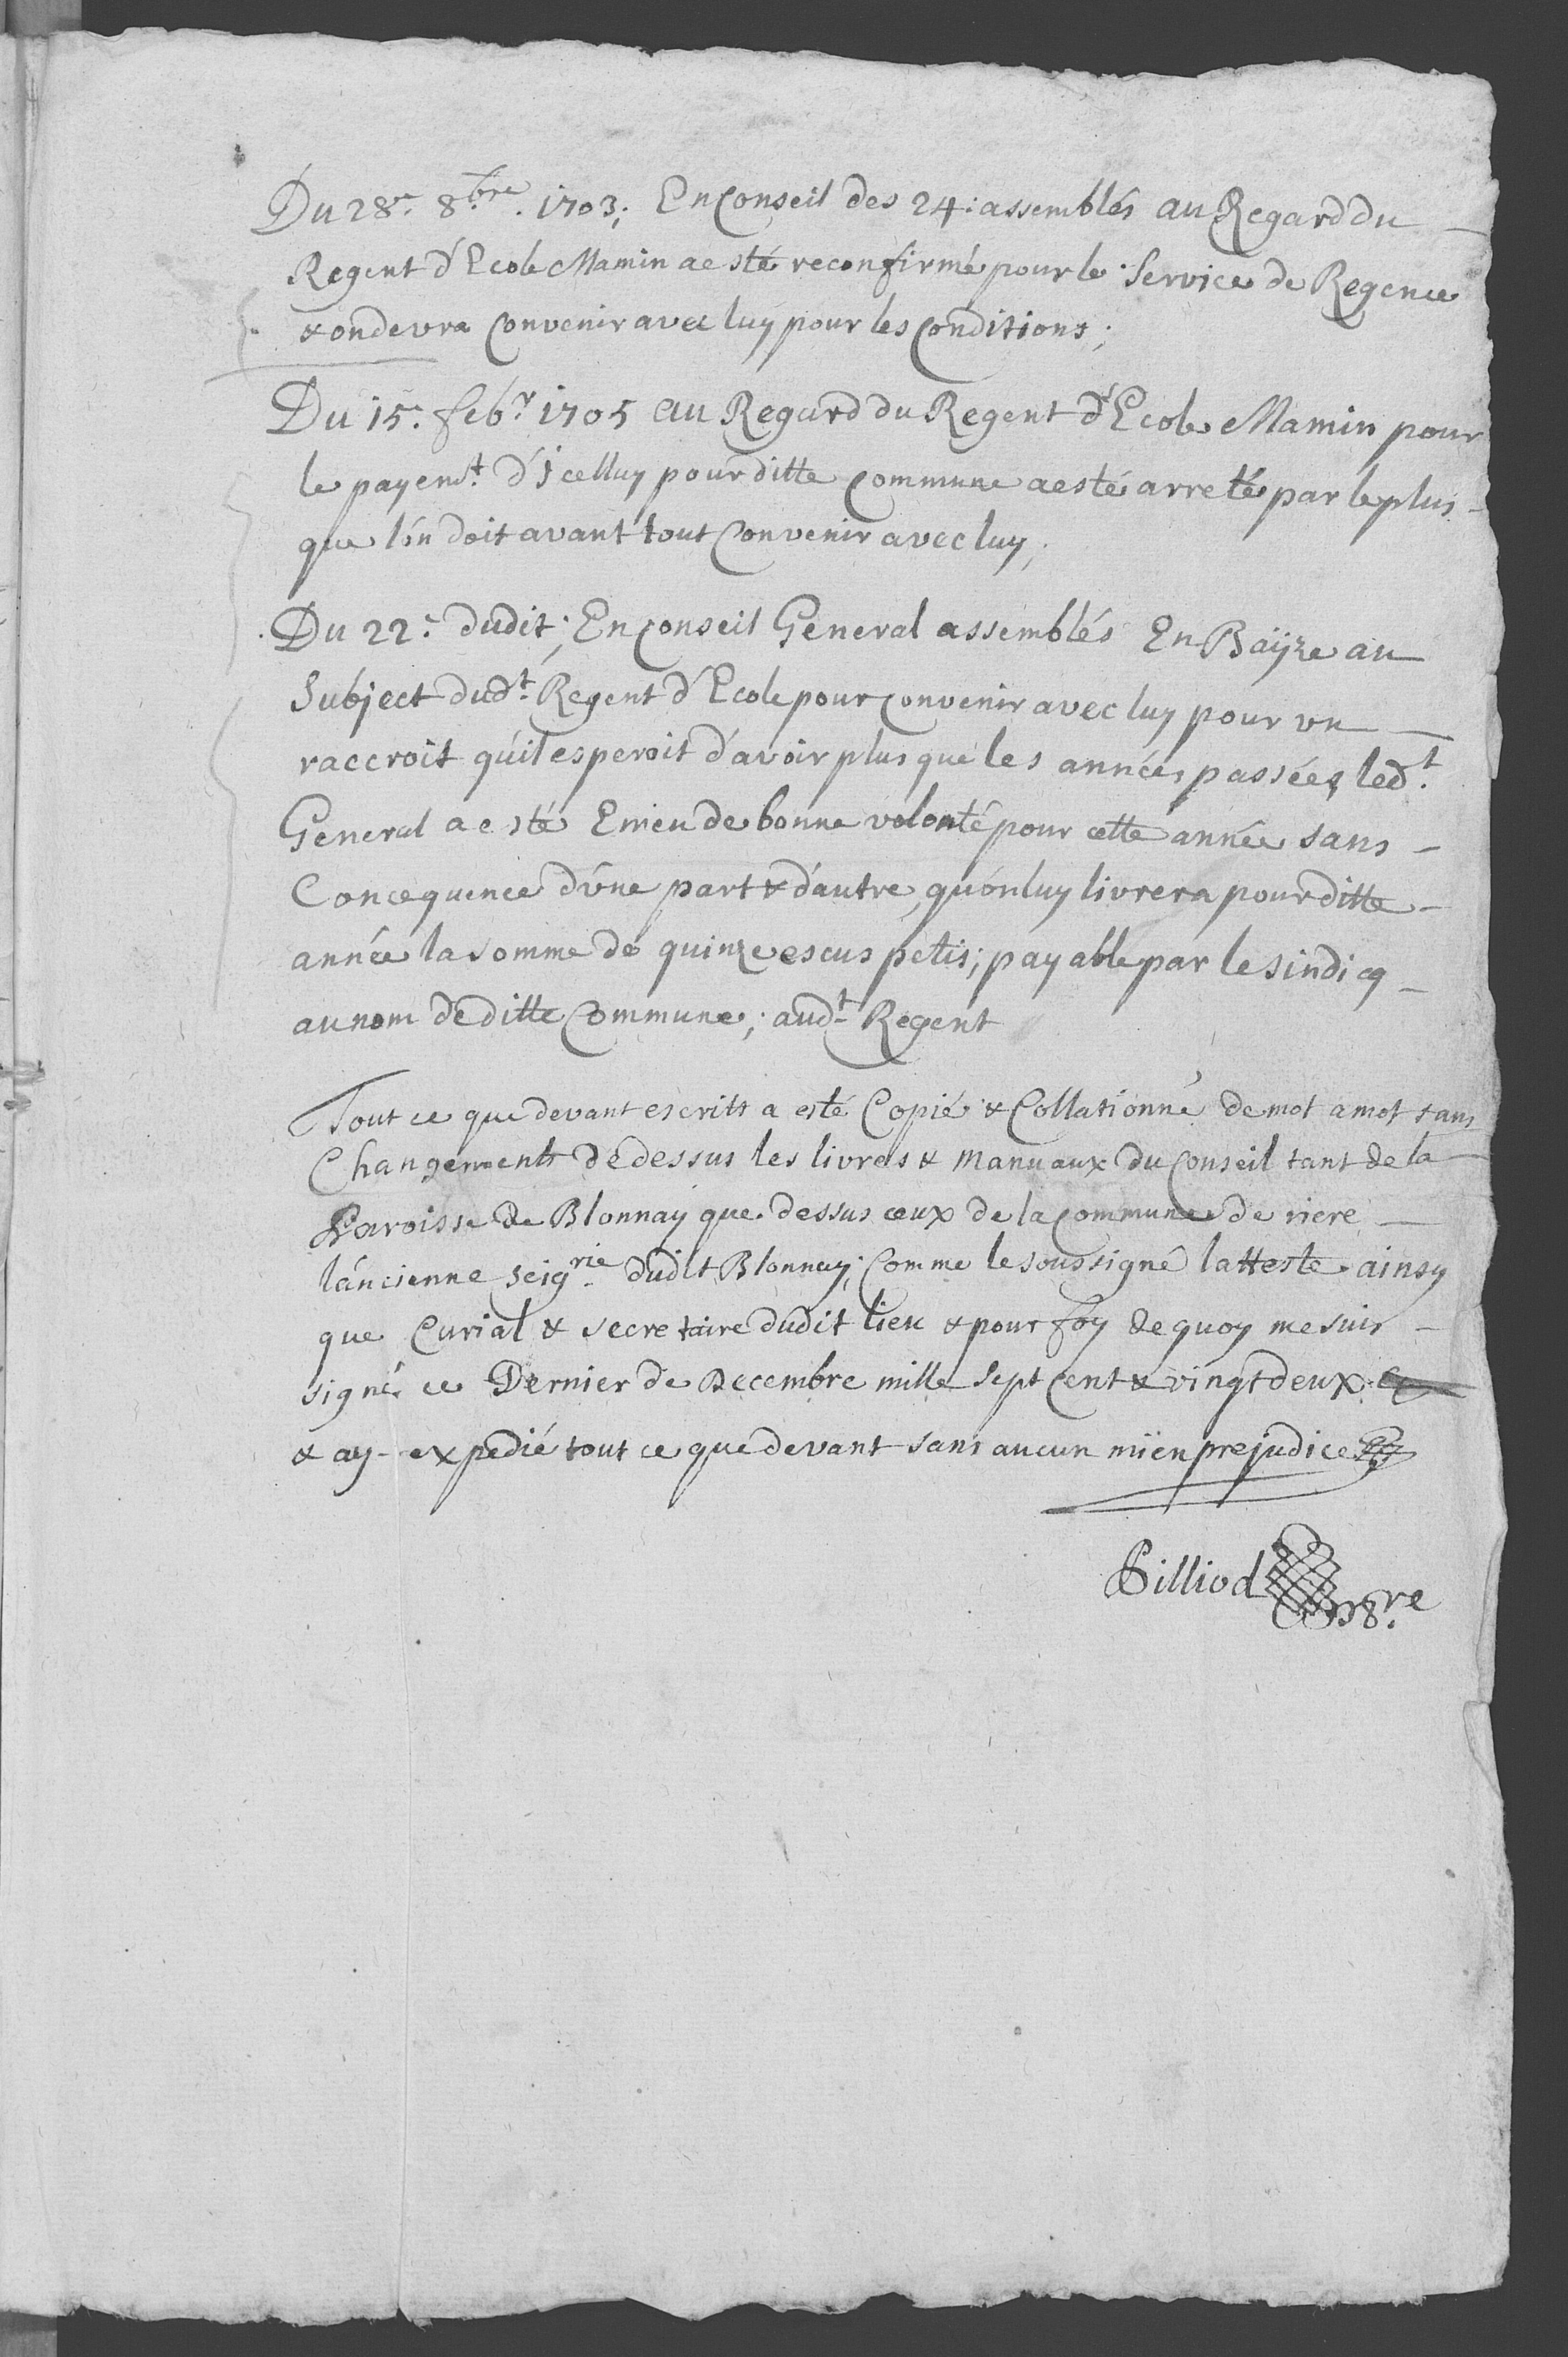 Du 28e. 8bre. 1703; En Conseil des 24: assemblés au Regard du
Regent d'Ecole Mamin a esté reconfirmé pour le Service de Regence
& on devra Convenir avec luy pour les Conditions;
Du 15e. febr 1705 au Regard du Regent d'Ecole Mamin pour
le payemt. d'Icelluy pour ditte Commune a esté arreté par le plus
que l'on doit avant tout Convenir avec luy;
Du 22e. dudit; En Conseil General assemblés En Baÿze au
Subject dudt. Regent d'Ecole pour Convenir avec luy pour vn
raccroit qu'il esperoit d'avoir plus que les années passées, ledt.
General a esté Emeu de bonne volonté pour cette année sans
Concequence d'vne part & d'autre, qu'on luy livrera pour ditte
année la somme de quinze escus petis; payable par le sindicq
au nom de ditte Commune; audt. Regent
Tout ce que devant escritt a esté Copié & Collationné de mot a mot sans
Changements de dessus les livres & manuaux du Conseil tant de la
Paroisse de Blonnay que dessus ceux de la Commune de riere
l'ancienne seigrie. dudit Blonnay; Comme le soussigné l'atteste ainsy
que Curial & secretaire dudit lieu & pour foy de quoy me suis
signé ce Dernier de Decembre mille sept Cent & vingt deux
& ay expedié tout ce que devant sans aucun mïen prejudice
Pilliod